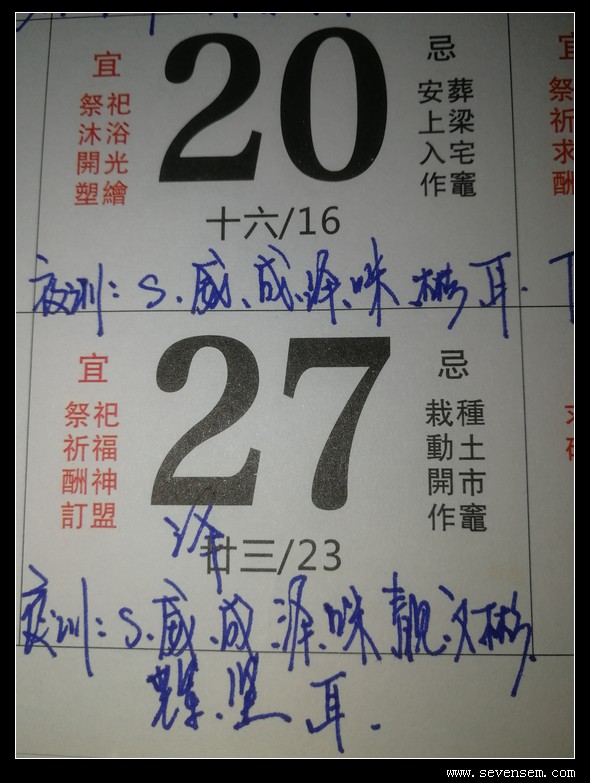 20
宜
祭祀
沐浴
開光
塑繪
忌
安葬
上梁
入宅
作竈
十六/16
夜訓：S、威、成、洢、咪、彬、耳.
27
宜
祭祀
祈福
酬神
訂盟
忌
栽種
動土
開市
作竈
廿三/23
夜訓：S、威、成、咪、靚、文、彬
耳.
祭
祈
求
酬
www.sevensem.com